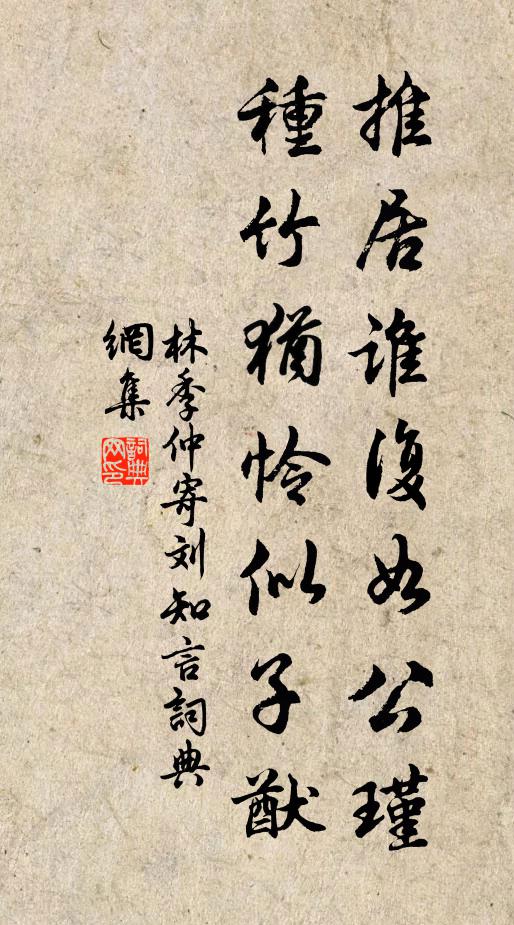 推居誰復如公瑾
種竹猶怜似子猷
林季仲寄刘知言詞典
網集
詞典网印